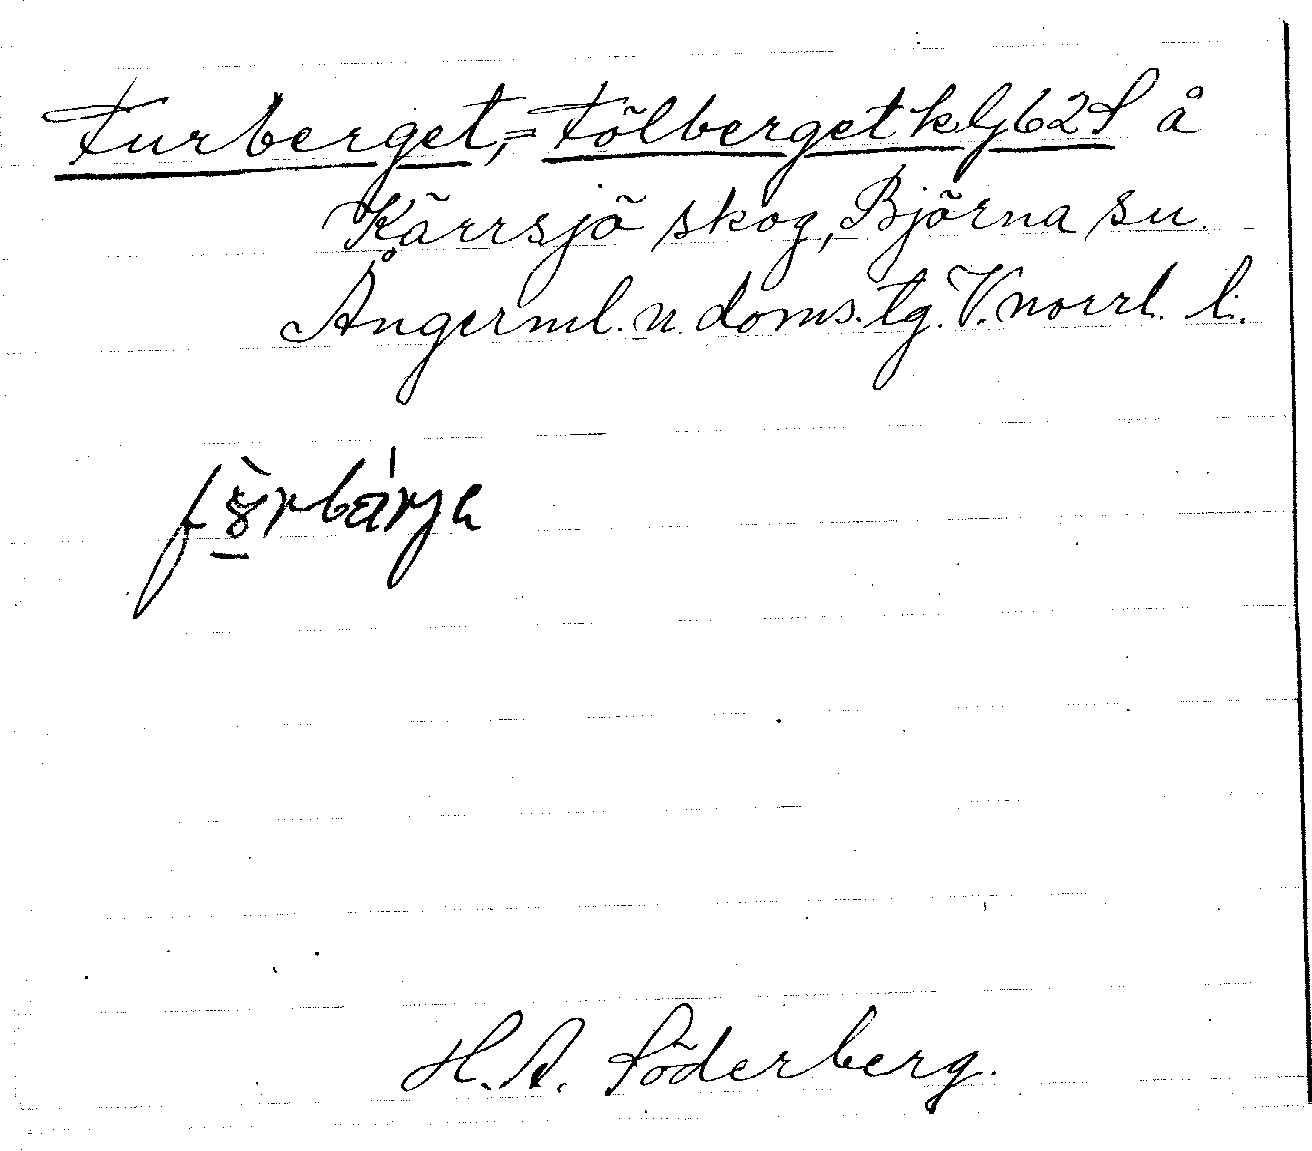 Furberget, = Fölberget k G62S å
Kärrsjö skog, Björna su.
Ångerml. n. doms. tg. V. norrl. l.
H. A. Söderberg.